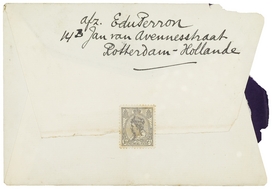 afz. EduPerron
14B Jan van Avennesstraat
Rotterdam - Hollande